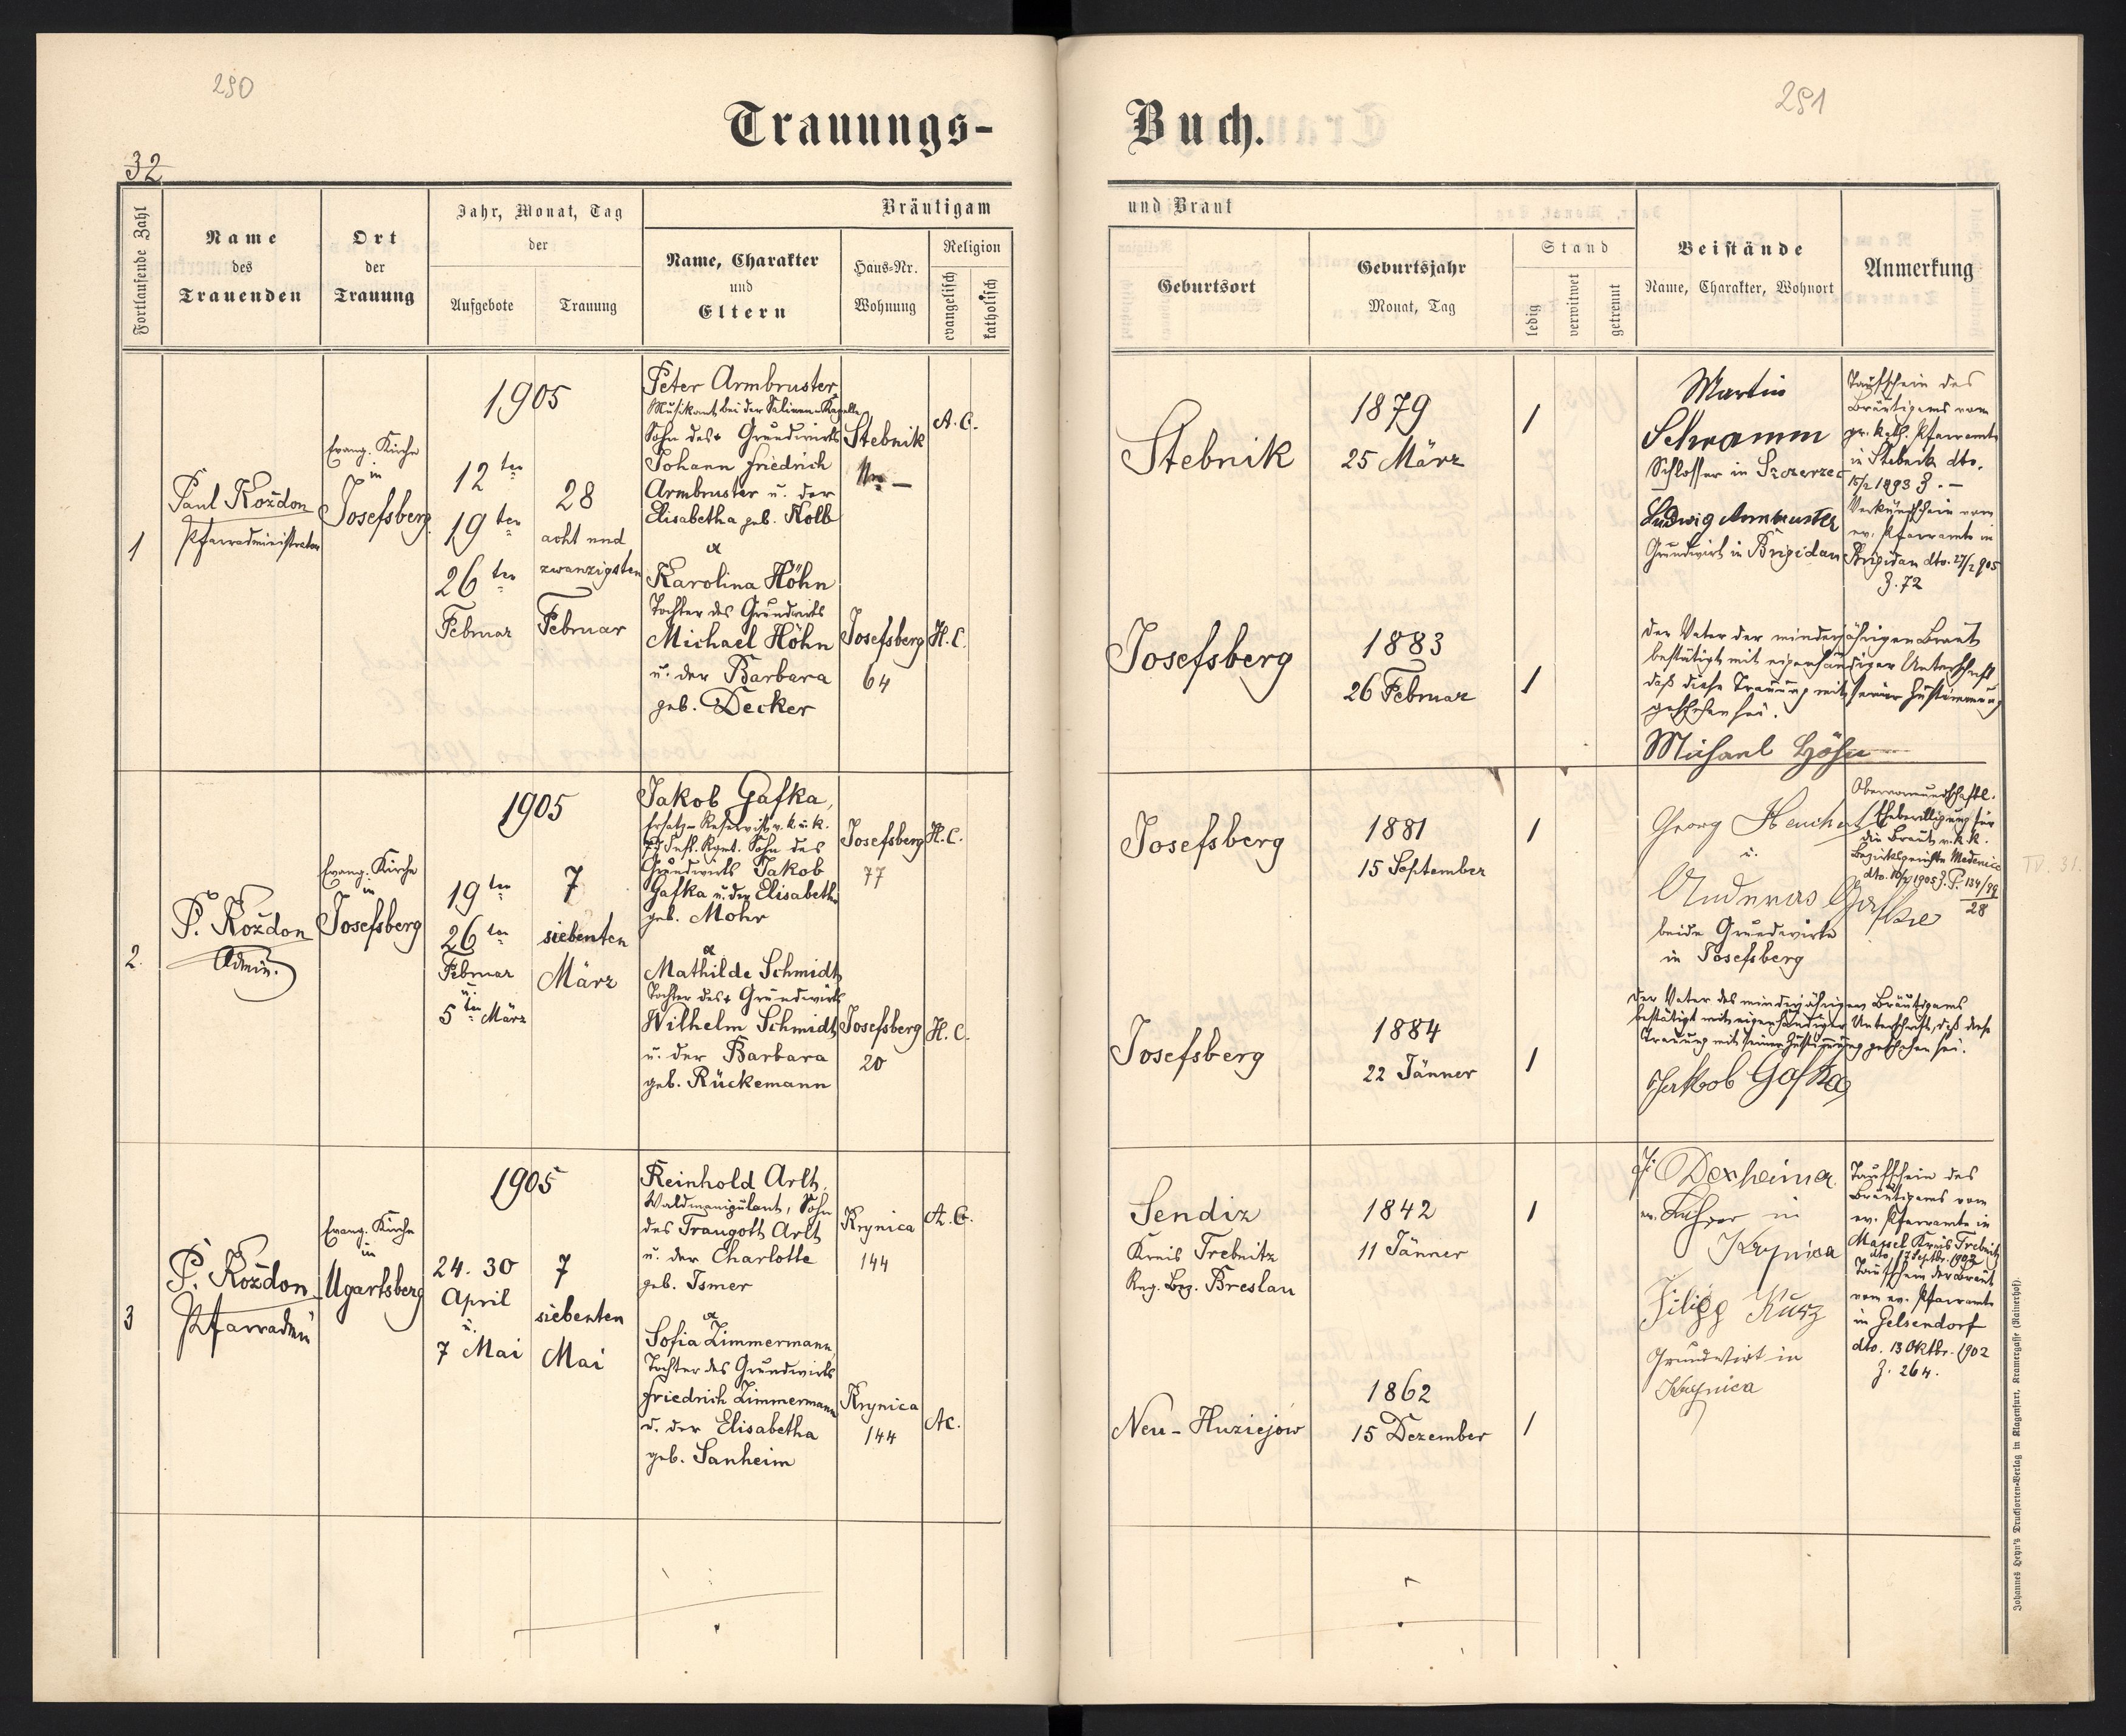 290
Trauungs-
32
Fortlaufende Zahl
Name
des
Trauenden
Ort
der
Trauung
Jahr, Monat, Tag
der
Aufgebote
Trauung
Bräutigam
Name, Charakter
und
Eltern
Haus-Nr.
Wohnung
Religion
evangelisch
katholisch
1
Paul Kożdon
Pfarradministrator
Evang. Kirche
in
Josefsberg
1905
12ten
19ten
26ten
Februar
28
acht und
zwanzigsten
Februar
Peter Armbruster
Musikant bei der Salinen-Kapelle
Sohn des + Grundwirts
Johann Friedrich
Armbruster u. der
Elisabetha geb. Kolb
&
Karolina Höhn
Tochter des Grundwirts
Michael Höhn
u. der Barbara
geb. Decker
Stebnik
Nr. —
A. C.
Josefsberg
64
H. C.
2.
P. Kożdon
Admin.
Evang. Kirche
in
Josefsberg
1905
19ten
26ten
Februar
u.
5ten März
7
siebenten
März
Jakob Gafka,
Ersatz-Reservist v. k. u. k.
77 Inft. Rgmt. Sohn des
Grundwirts Jakob
Gafka u. der Elisabetha
geb. Mohr
&
Mathilde Schmidt
Tochter des + Grundwirts
Wilhelm Schmidt
u. der Barbara
geb. Rückemann
Josefsberg
77
H. C.
Josefsberg
20
H. C.
3
P. Kożdon
Pfarradmin
Evang. Kirche
in
Ugartsberg
1905
24. 30
April
u.
7 Mai
7
siebenten
Mai
Reinhold Arlt,
Waldmanipulant, Sohn
des Traugott Arlt
u. der Charlotte
geb. Ismer
&
Sofia Zimmermann,
Tochter des Grundwirts
Friedrich Zimmermann
u. der Elisabetha
geb. Sanheim
Krynica
144
A. C.
Krynica
144
AC.
291
Buch.
und Braut
Geburtsort
Geburtsjahr
Monat, Tag
Stand
ledig
verwitwet
getrennt
Beistände
Name, Charakter, Wohnort
Anmerkung
Stebnik
1879
25 März
1
Martin
Schramm
Schlosser in Szczerzec
Ludwig Armbruster
Grundwirt in Brigidau
Taufschein des
Bräutigams vom
gr. kath. Pfarramte
in Stebnik dto.
15/2 1893 Z. —
Verkündschein vom
ev. Pfarramte in
Brigidau dto. 27/2 905
Z. 72
Josefsberg
1883
26 Februar
1
Der Vater der minderjährigen Braut
bestätigt mit eigenhändiger Unterschrift
daß diese Trauung mit seiner Zustimmung
geschehen sei.
Michael Höhn
Josefsberg
1881
15 September
1
Georg Heuchert
u.
Andreas Gafka
beide Grundwirte
in Josefsberg
Obervormundschaftl.
Ehebewilligung für
die Braut v. k. k.
Bezirksgerichte Medenice
dto. 10/2 1905 Z. P. 134/99
28
IV. 31.
Josefsberg
1884
22 Jänner
1
Der Vater des minderjährigen Bräutigams
bestätigt mit eigenhändiger Unterschrift, daß diese
Trauung mit seiner Zustimmung geschehen sei.
Jakob Gafka
Sendiz
Kreis Trebnitz
Reg. Bez. Breslau
1842
11 Jänner
1
J. Dexheimer
ev. Lehrer in
Krynica
Filipp Kurz
Grundwirt in
Krynica
Taufschein des
Bräutigams vom
ev. Pfarramte in
Massel Kreis Trebnitz
dto. 17 Septbr. 1902
Taufschein der Braut
vom ev. Pfarramte
in Gelsendorf
dto. 13 Oktbr. 1902
Z. 264.
Neu-Huziejów
1862
15 Dezember
1
Johannes Heyn's Drucksorten-Verlag in Klagenfurt, Kramergasse (Rainerhof).